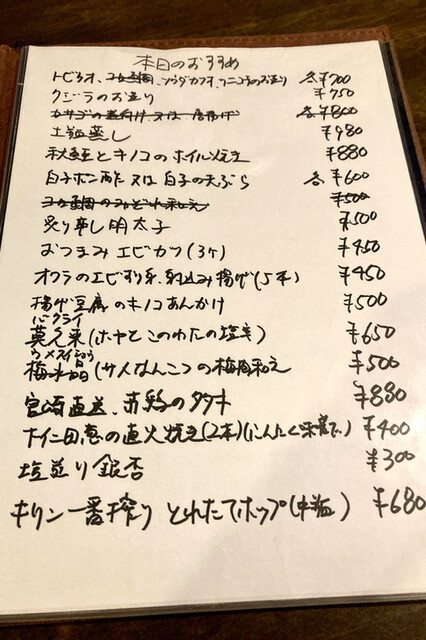 本日のおすすめ
トビウオ、コケ煮鯛、ソウダガツオ、ワニゴチのお造り 各¥700
クジラのお造り ¥750
カサゴの煮付け又は唐揚げ 各¥800
土瓶蒸し ¥980
秋鮭とキノコのホイル焼き ¥880
白子ポン酢又は白子の天ぷら 各¥600
のみぞれ和え ¥500
炙り辛し明太子 ¥500
おつまみエビカツ(3ヶ) ¥450
オクラのエビすり身射込み揚げ(5本) ¥450
揚げ豆腐のキノコあんかけ ¥500
バクライ
莫久来(ホヤとこのわたの塩辛) ¥650
ウメスイショウ
梅水晶(サメなんこつの梅肉和え ¥500
宮崎直送、赤鶏のタタキ ¥880
の直火焼き(2本)(にんにく味噌で) ¥400
塩煎り銀杏 ¥300
キリン一番搾りとれたてホップ(中瓶) ¥680